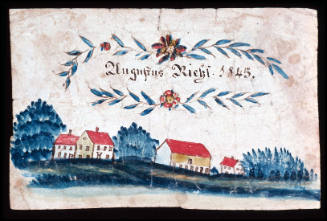 Augustus Riehl. 1845.